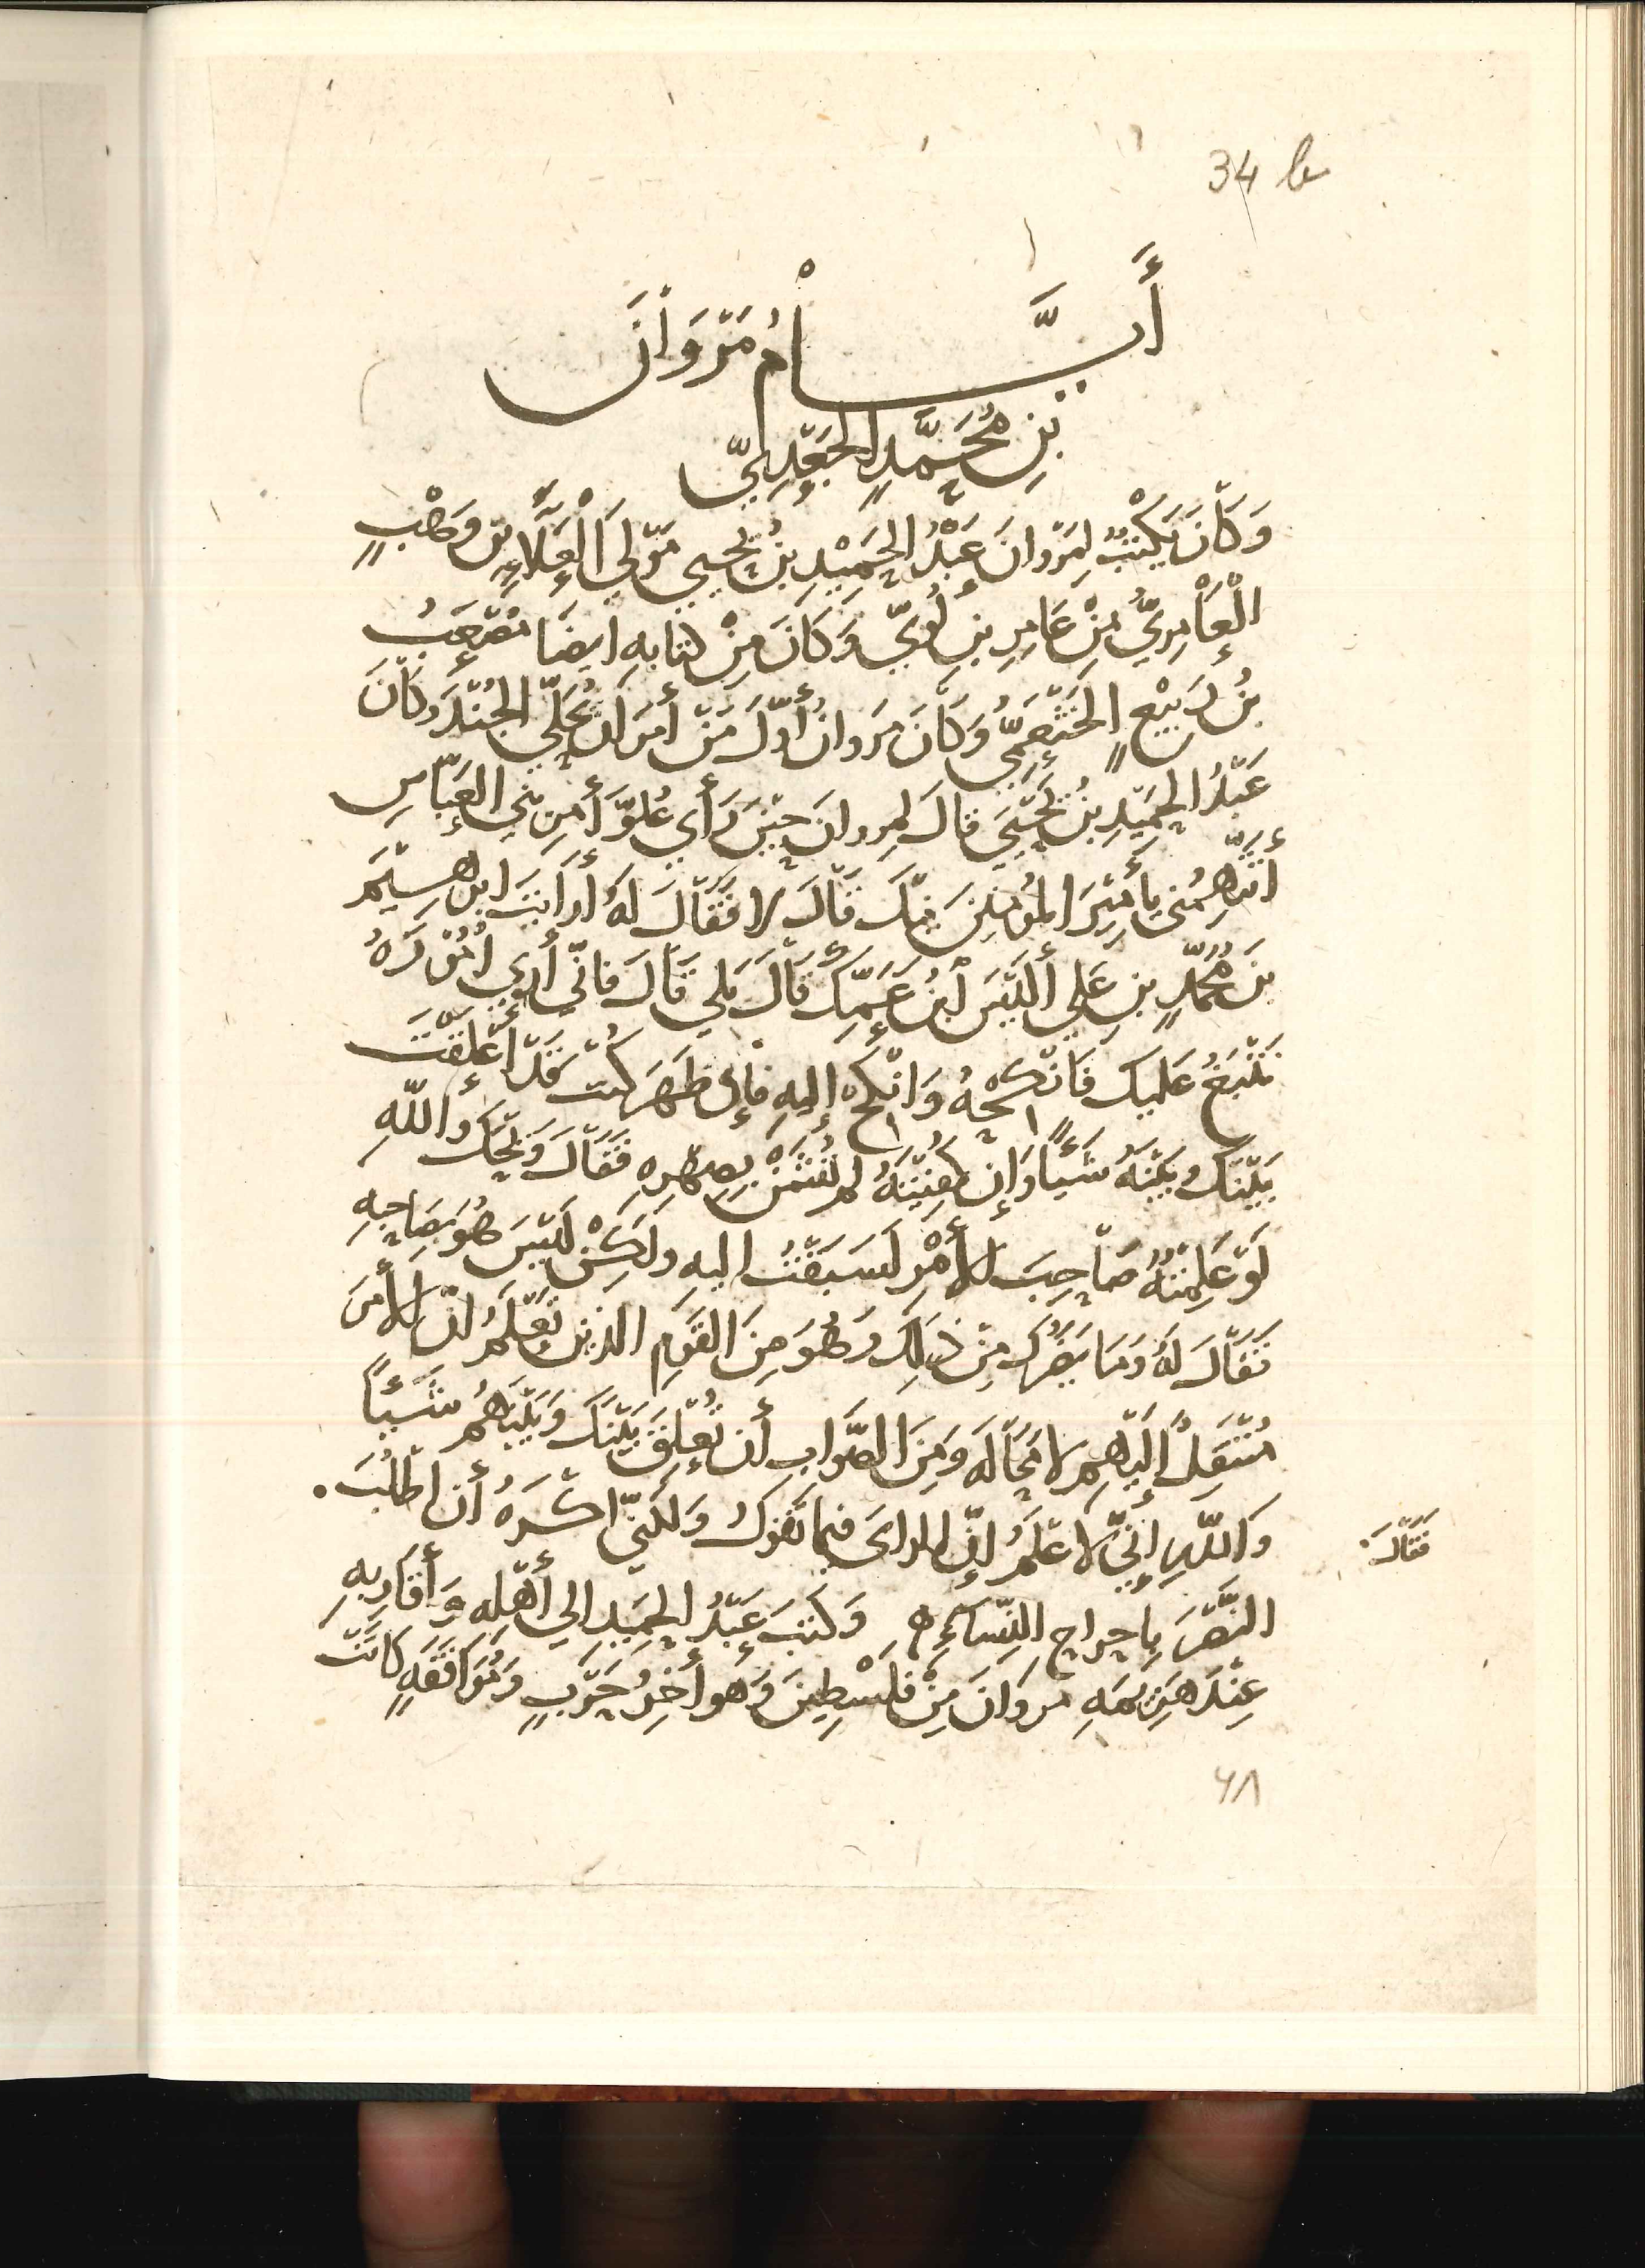 34 b
أَيَّامُ مَرْوَانَ
بْنِ مُحَمَّدٍ الجَعْدِيّ
وَكَانَ يَكْتُبُ لِمَرْوَانَ عَبْدُ الحَمِيْدِ بْنُ يَحْيي مَوْلَي الْعَلَاءِ بن وَهْبٍ
الْعَامِرِيُّ مِنْ عَامِرِ بنِ لُؤَيّ وَكَانَ مِنْ كتابهِ ايضَا مُصْعَبُ
بْنُ رَبِيْعٍ الخَثْعَمِيُّ وَكَانَ مَروانُ أَوّلَ مَنْ أمَرَ أن يُحَلّي الجُنْدَ وَكَانَ
عَبْدُ الحَمِيْدِ بْنُ يَحْيَي قالَ لمروانَ حِيْنَ رَأَي عُلُوَّ أَمرِ بَنِي العَبَّاسِ
أَتَتَّهِمُني يا أَمِيْرَ المُؤمنِينَ مِنْكَ قَالَ لا فَقَالَ لَهُ أرَايْتَ ابرهِيْمَ
بنَ مُحَمَّدٍ بنِ عَلي ألَيْسَ ابْنُ عَمِّكَ قَالَ بَلي قَالَ فاني أرَي امُوْرَهُ
تَنْبُغُ عَلَيك فَانْكِحْهُ وَانْكِحْ إليهِ فإن ظَهَرَ كُنْتَ قَدْ أَعْلَقْتَ
بَيْنَكَ وبَيْنَهُ شَيْئًا وَإن كُفِيْتَهُ لم تُشَنْ بِصِهْرِهِ فَقَالَ وَيْحَكَ واللّهِ
لَوْ عَلِمْتُهُ صَاحِبَ الأَمْرِ لَسَبَقْتُ اليهِ ولَكِنْ لَيْسَ هُوَ بصَاحِبِهِ
فَقَالَ لَهُ وَمَا يَضُرُّكَ مِنْ ذلِكَ وَهُوَ مِنَ القَوْمِ الذين تَعْلَمُ انّ الأمرَ
مُنْتَقِلٌ إلَيْهِم لا مَحَالَه وَمِنَ الصَّوَابِ أن تُعْلِقَ بَيْنَكَ وَبَيْنَهُم شَيْئًا
فَقَالَ
وَاللّهِ إنّي لاعْلَمُ إنّ الراىَ فيما تَقولُ وَلكنّي اكْرَهُ أن اطْلُبَ
النَّصْرَ باحراج النّسَآءِ وَكَتَبَ عَبْدُ الحَمِيدِ الي أَهْلِهِ وَأَقَارِبِهِ
عِنْدَ هَزِيْمَهِ مروَانَ مِنْ فلَسْطِينَ وَهو أخِرُ حَرْبٍ وَمُوَاقَفَهٍ كَانَتْ
٦٨